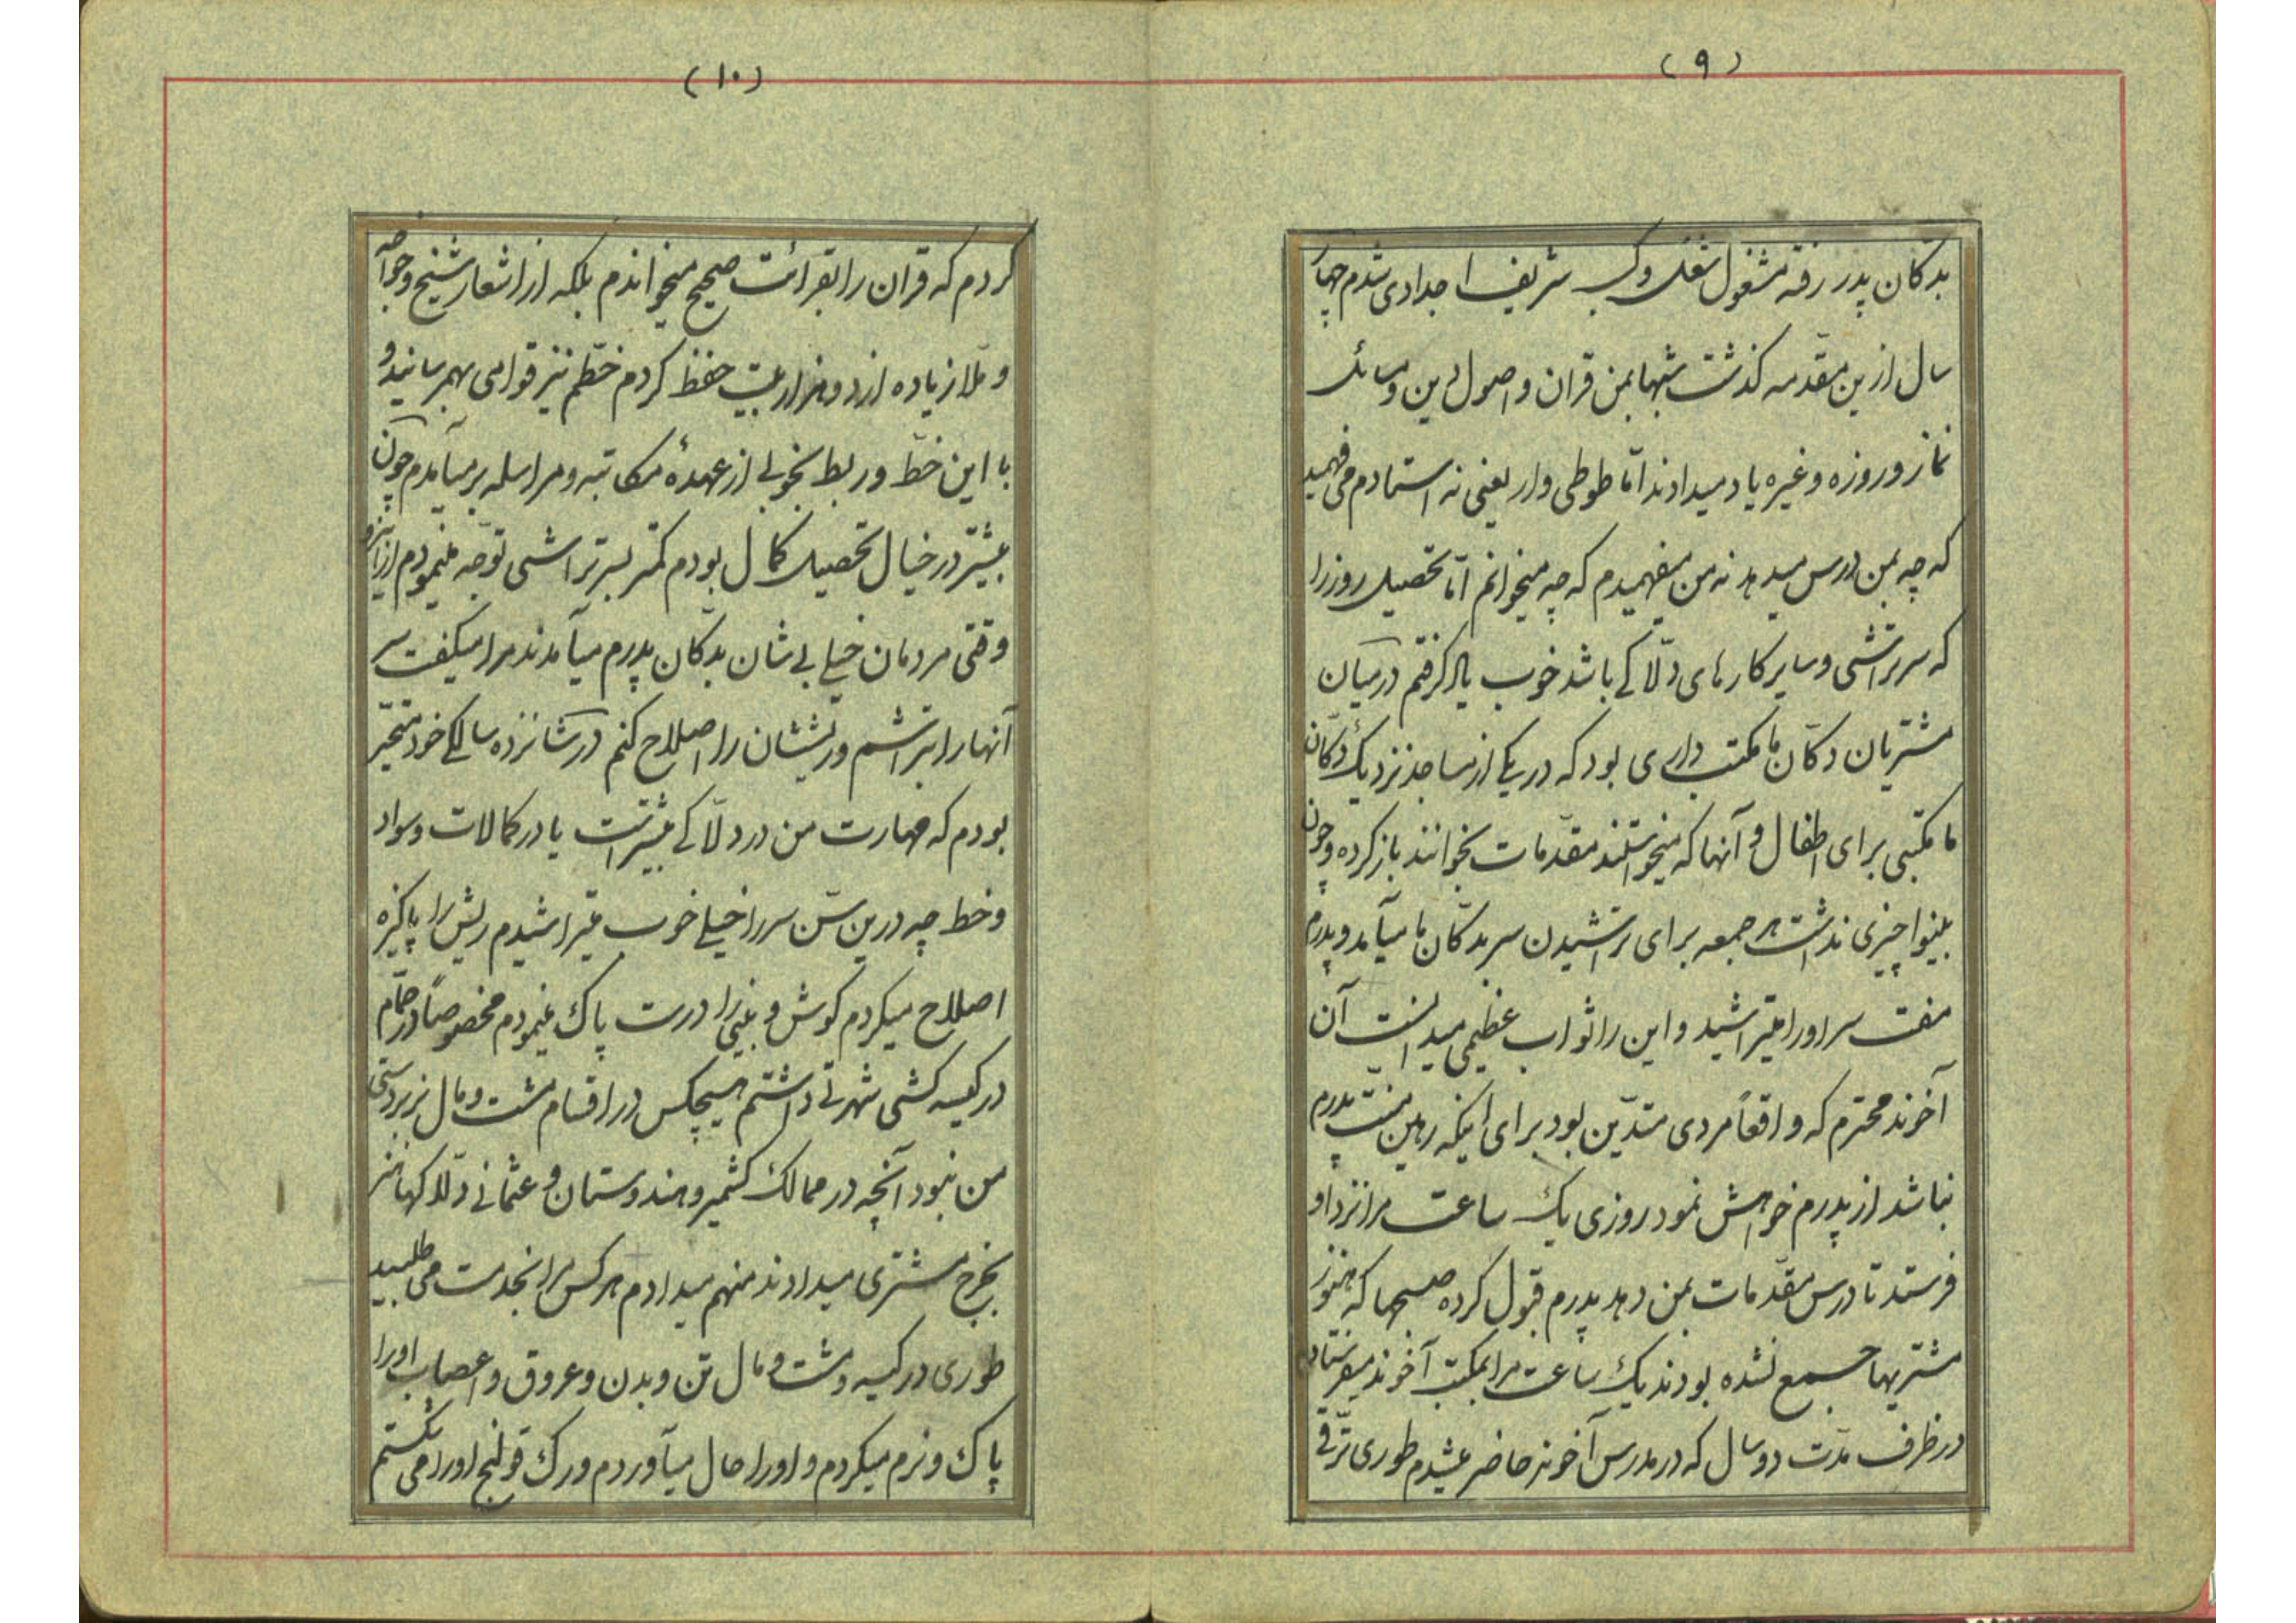 (۹)
بدکان پدر رفته مشغول شغل و کسب شریف اجدادی شدم چهار
سال ازین مقدّمه کذشت شبها بمن قران و اصول دین و مسائل
نماز و روزه و غیره یاد میدادند امّا طوطی وار یعنی نه استادم می فهمید
که چه بمن درس میدهد نه من میفهمیدم که چه میخوانم امّا تحصیل روز را
که سر تراشی و سایر کارهای دلّاکی باشد خوب یاد کرفتم در میان
مشتریان دکّان ما مکتب داری بود که در یکی از مساجد نزدیک دکّان
ما مکتبی برای اطفال و آنها که میخواستند مقدّمات بخوانند باز کرده و چون
بینوا چیزی نداشت هر جمعه برای تراشیدن سر بدکّان ما میآمد و پدرم
مفت سر اورا میتراشید و این را ثواب عظیمی میدانست آن
آخوند محترم که واقعاً مردی متدّین بود برای اینکه رهین منّت پدرم
نباشد از پدرم خواهش نمود روزی یک ساعت مرا نزد او
فرستد تا درس مقدّمات بمن دهد پدرم قبول کرده صبحها که هنوز
مشتریها جمع نشده بودند یک ساعت مرا بمکتب آخوند میفرستاد
در ظرف مدّت دو سال که در مدرس آخوند حاضر میشدم طوری ترّقی
(۱۰)
کردم که قران را بقرائت صحیح میخواندم بلکه از اشعار شیخ و خواجه
و ملّا زیاده از دو هزار بیت حفظ کردم خطّم نیز قوامی بهم رسانید و
با این خطّ و ربط بخوبی از عهدۀ مکاتبه و مراسله بر میآمدم چون
بیشتر در خیال تحصیل کمال بودم کمتر بسر تراشی توّجه مینمودم ازاینرو
وقتی مردمان خیلی بی شان بدکّان پدرم میآمدند مرا میکفت سر
آنها را بتراشم و ریششان را اصلاح کنم در شانزده سالکی خود متحیّر
بودم که مهارت من در دلّاکی بیشتر است یا در کمالات و سواد
و خط چه درین سّن سر را خیلی خوب میتراشیدم ریش را پاکیزه
اصلاح میکردم کوش و بینی را درست پاک مینمودم مخصوصاً در حمّام
در کیسه کشی شهرتی داشتم هیچکس در اقسام مشت و مال بزبردستی
من نبود آنچه در ممالک کشمیر و هندوستان و عثمانی دلّاکها هنر
بخرج مشتری میدادند منهم میدادم هر کس مرا بخدمت می طلبید
طوری در کیسه و مشت و مال تن و بدن و عروق و اعصاب اورا
پاک و نرم میکردم و اورا حال میآوردم و رک قولنج اورا می شکستم